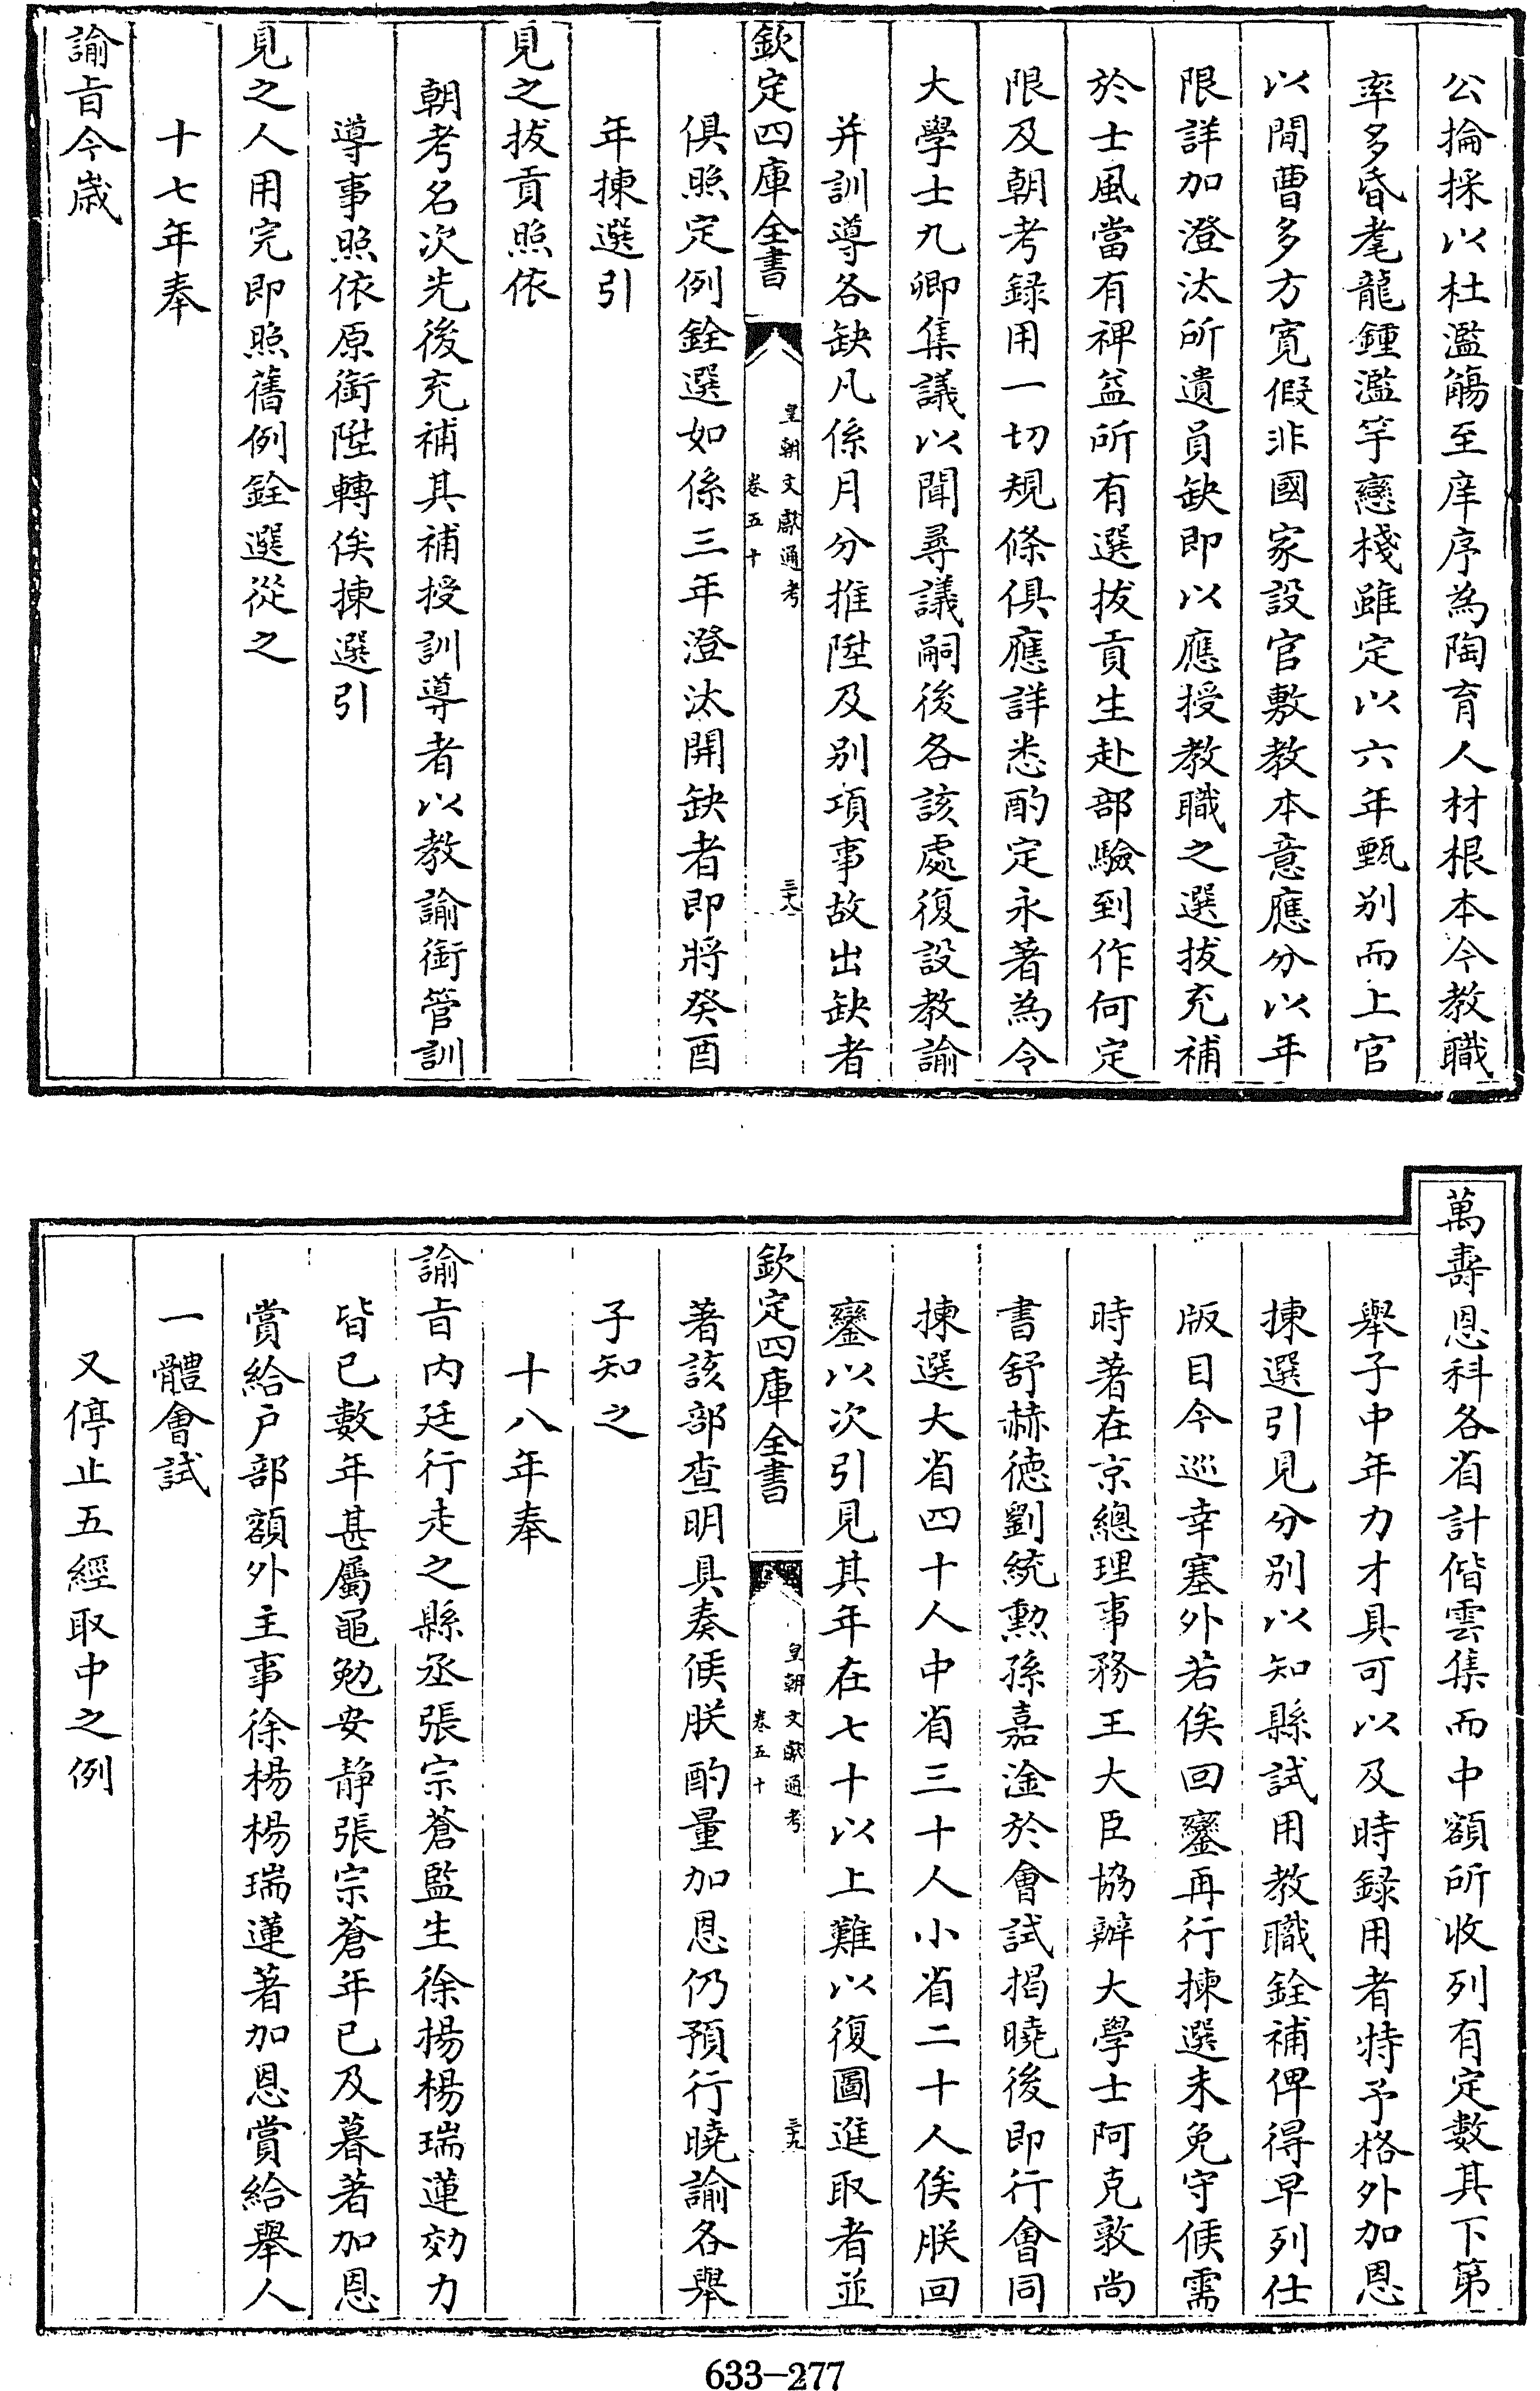 公掄採以杜濫觴至庠序為陶育人材根本今教職
率多昏耄龍鍾濫竽戀棧雖定以六年甄别而上官
以閒曹多方寛假非國家設官敷教本意應分以年
限詳加澄汰所遺員缺即以應授教職之選拔充補
於士風當有裨益所有選拔貢生赴部驗到作何定
限及朝考録用一切規條俱應詳悉酌定永著為令
大學士九卿集議以聞尋議嗣後各該處復設教諭
并訓導各缺凡係月分推陞及别項事故出缺者
欽定四庫全書
皇朝文獻通考
卷五十
三十八
俱照定例銓選如係三年澄汰開缺者即將癸酉
年揀選引
見之拔貢照依
朝考名次先後充補其補授訓導者以教諭銜管訓
導事照依原銜陞轉俟揀選引
見之人用完即照舊例銓選從之
十七年奉
諭㫖今歳
萬壽恩科各省計偕雲集而中額所收列有定數其下第
舉子中年力才具可以及時録用者特予格外加恩
揀選引見分别以知縣試用教職銓補俾得早列仕
版目今巡幸塞外若俟回鑾再行揀選未免守候需
時著在京總理事務王大臣協辦大學士阿克敦尚
書舒赫德劉統勲孫嘉淦於會試揭曉後即行會同
揀選大省四十人中省三十人小省二十人俟朕回
鑾以次引見其年在七十以上難以復圖進取者並
欽定四庫全書
皇朝文獻通考
卷五十
三十九
著該部查明具奏候朕酌量加恩仍預行曉諭各舉
子知之
十八年奉
諭㫖内廷行走之縣丞張宗蒼監生徐楊楊瑞蓮効力
皆已數年甚屬黽勉安静張宗蒼年已及暮著加恩
賞給户部額外主事徐楊楊瑞蓮著加恩賞給舉人
一體會試
又停止五經取中之例
633-277